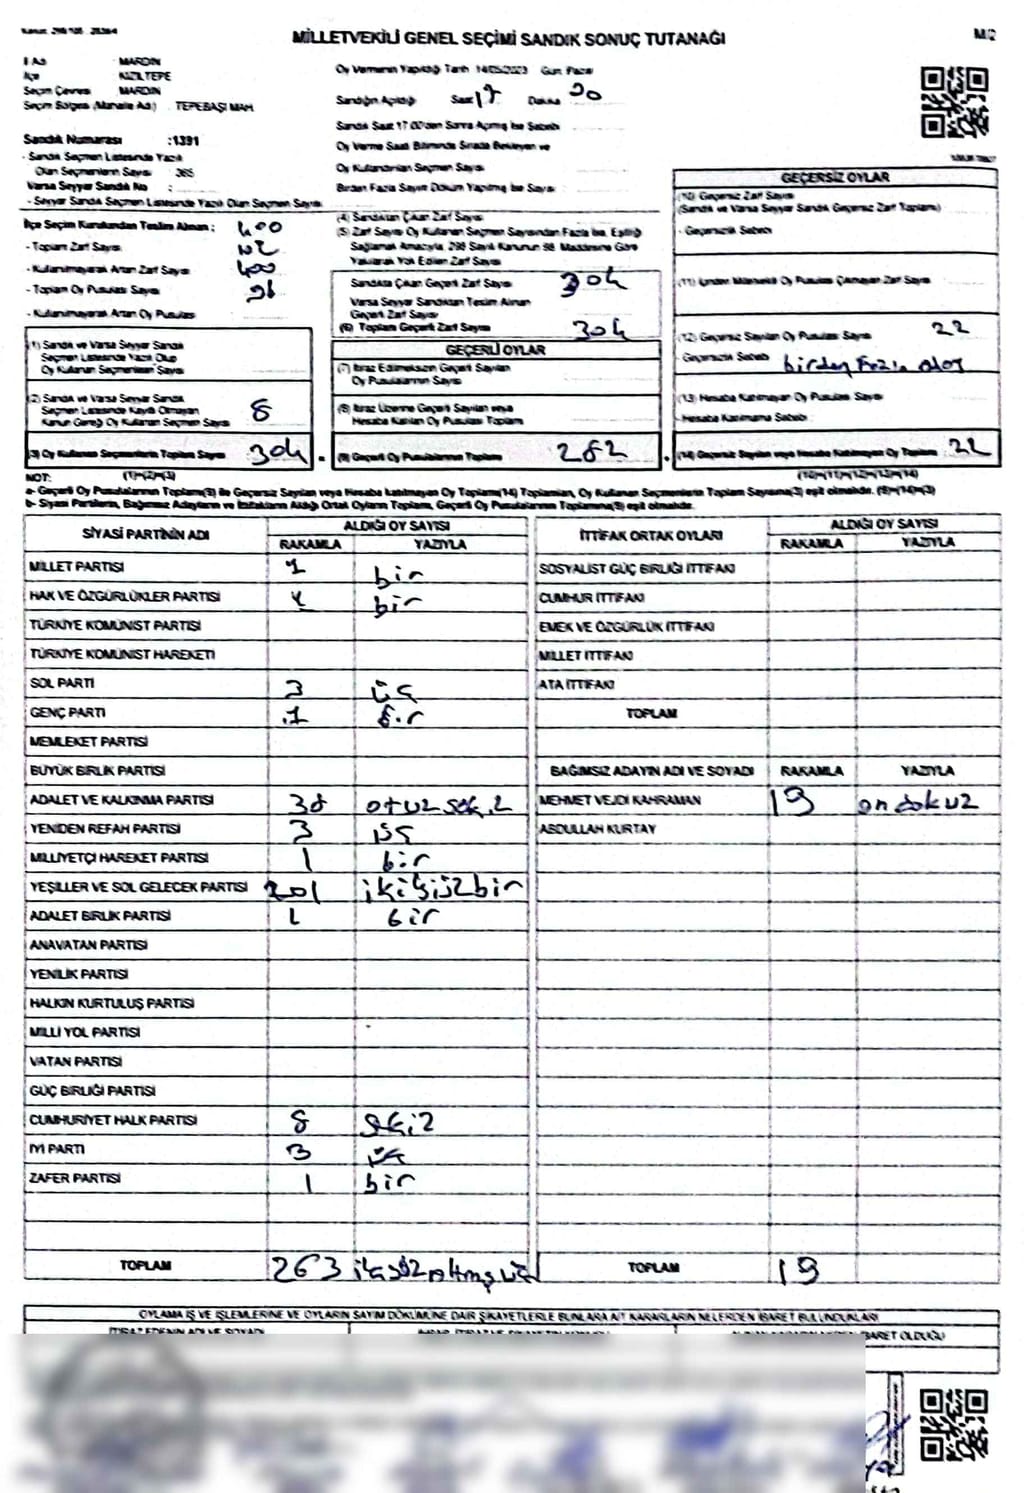 MİLLETVEKİLİ GENEL SEÇİMİ SANDIK SONUÇ TUTANAĞI
M/2
İl Adı : MARDİN
İlçe : KIZILTEPE
Seçim Çevresi : MARDİN
Seçim Bölgesi (Mahalle Adı) : TEPEBAŞI MAH
Sandık Numarası :1391
- Sandık Seçmen Listesinde Yazılı
Olan Seçmenlerin Sayısı : 365
Varsa Seyyar Sandık No :
- Seyyar Sandık Seçmen Listesinde Yazılı Olan Seçmen Sayısı
Oy Vermenin Yapıldığı Tarih 14/05/2023 Gün: Pazar
Sandığın Açıldığı Saat Dakika
Sandık Saat 17.00'den Sonra Açılmış İse Sebebi
Oy Verme Saati Bitiminde Sırada Bekleyen ve
Oy Kullandırılan Seçmen Sayısı
Birden Fazla Sayım Döküm Yapılmış İse Sayısı
İlçe Seçim Kurulundan Teslim Alınan : 400
- Toplam Zarf Sayısı
- Kullanılmayarak Artan Zarf Sayısı 400
- Toplam Oy Pusulası Sayısı 96
- Kullanılmayarak Artan Oy Pusulası
(1) Sandık ve Varsa Seyyar Sandık
Seçmen Listesinde Yazılı Olup
Oy Kullanan Seçmenlerin Sayısı
(2) Sandık ve Varsa Seyyar Sandık
Seçmen Listesinde Kayıtlı Olmayan
Kanun Gereği Oy Kullanan Seçmen Sayısı 8
(3) Oy Kullanan Seçmenlerin Toplam Sayısı 304
(4) Sandıktan Çıkan Zarf Sayısı
(5) Zarf Sayısı Oy Kullanan Seçmen Sayısından Fazla İse, Eşitliği
Sağlamak Amacıyla, 298 Sayılı Kanunun 98. Maddesine Göre
Yakılarak Yok Edilen Zarf Sayısı
Sandıkta Çıkan Geçerli Zarf Sayısı 304
Varsa Seyyar Sandıktan Teslim Alınan
Geçerli Zarf Sayısı
(6) Toplam Geçerli Zarf Sayısı 304
GEÇERLİ OYLAR
(7) İtiraz Edilmeksizin Geçerli Sayılan
Oy Pusulalarının Sayısı
(8) İtiraz Üzerine Geçerli Sayılan veya
Hesaba Katılan Oy Pusulası Toplamı
(9) Geçerli Oy Pusulalarının Toplamı 282
GEÇERSİZ OYLAR
(10) Geçersiz Zarf Sayısı
(Sandık ve Varsa Seyyar Sandık Geçersiz Zarf Toplamı)
- Geçersizlik Sebebi
(11) İçinden Milletvekili Oy Pusulası Çıkmayan Zarf Sayısı
(12) Geçersiz Sayılan Oy Pusulası Sayısı 22
- Geçersizlik Sebebi birden Fazla
(13) Hesaba Katılmayan Oy Pusulası Sayısı
- Hesaba Katılmama Sebebi
(14) Geçersiz Sayılan veya Hesaba Katılmayan Oy Toplamı 22
NOT: (1)+(2)=(3) (10)+(11)+(12)+(13)=(14)
a- Geçerli Oy Pusulalarının Toplamı(9) ile Geçersiz Sayılan veya Hesaba katılmayan Oy Toplamı(14) Toplamları, Oy Kullanan Seçmenlerin Toplam Sayısına(3) eşit olmalıdır. (9)+(14)=(3)
b- Siyasi Partilerin, Bağımsız Adayların ve İttifakların Aldığı Ortak Oyların Toplamı, Geçerli Oy Pusulalarının Toplamına(9) eşit olmalıdır.
SİYASİ PARTİNİN ADI ALDIĞI OY SAYISI
RAKAMLA YAZIYLA
MİLLET PARTİSİ 1 bir
HAK VE ÖZGÜRLÜKLER PARTİSİ 1 bir
TÜRKİYE KOMÜNİST PARTİSİ
TÜRKİYE KOMÜNİST HAREKETİ
SOL PARTİ 3 üç
GENÇ PARTİ 1 bir
MEMLEKET PARTİSİ
BÜYÜK BİRLİK PARTİSİ
ADALET VE KALKINMA PARTİSİ 38 otuz sekiz
YENİDEN REFAH PARTİSİ 3 üç
MİLLİYETÇİ HAREKET PARTİSİ 1 bir
YEŞİLLER VE SOL GELECEK PARTİSİ 201 ikiyüzbir
ADALET BİRLİK PARTİSİ 1 bir
ANAVATAN PARTİSİ
YENİLİK PARTİSİ
HALKIN KURTULUŞ PARTİSİ
MİLLİ YOL PARTİSİ
VATAN PARTİSİ
GÜÇ BİRLİĞİ PARTİSİ
CUMHURİYET HALK PARTİSİ 8 sekiz
İYİ PARTİ 3 üç
ZAFER PARTİSİ 1 bir
TOPLAM 263 ikiyüzaltmışüç
İTTİFAK ORTAK OYLARI ALDIĞI OY SAYISI
RAKAMLA YAZIYLA
SOSYALİST GÜÇ BİRLİĞİ İTTİFAKI
CUMHUR İTTİFAKI
EMEK VE ÖZGÜRLÜK İTTİFAKI
MİLLET İTTİFAKI
ATA İTTİFAKI
TOPLAM
BAĞIMSIZ ADAYIN ADI VE SOYADI RAKAMLA YAZIYLA
MEHMET VEJDİ KAHRAMAN 19 on dokuz
ABDULLAH KURTAY
TOPLAM 19
OYLAMA İŞ VE İŞLEMLERİNE VE OYLARIN SAYIM DÖKÜMÜNE DAİR ŞİKAYETLERLE BUNLARA AİT KARARLARIN NELERDEN İBARET BULUNDUKLARI